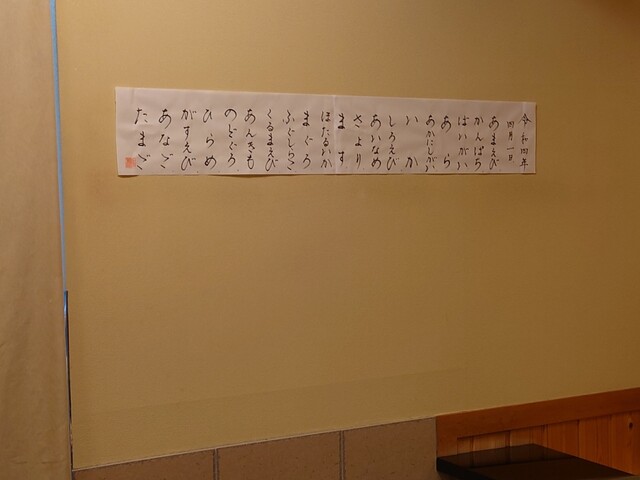 令和四年
四月一日
あまえび
かんぱち
ばいがい
あら
あかにしがい
いか
しろえび
あいなめ
さより
ます
ほたるいか
まぐろ
ふぐしらこ
くるまえび
あんきも
のどぐろ
ひらめ
がすえび
あなご
たまご